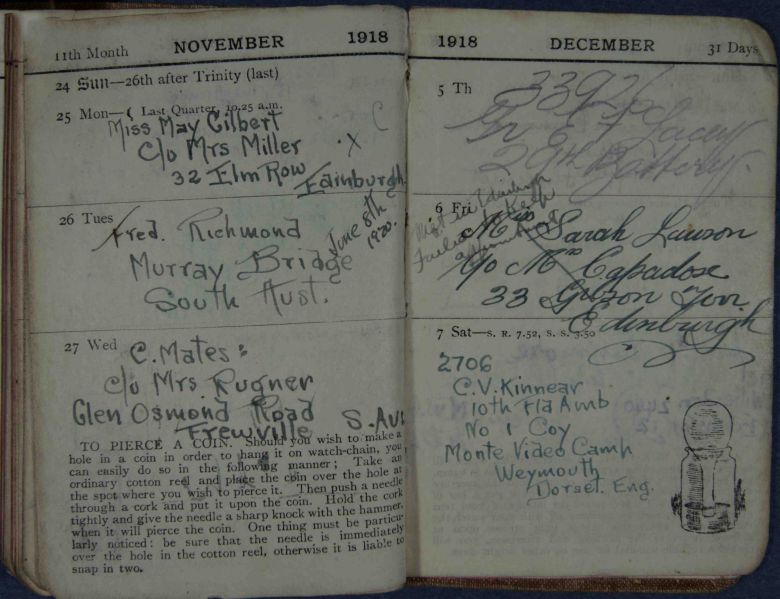 11th Month NOVEMBER 1918
24 Sun—26th after Trinity (last)
25 Mon—☾ Last Quarter, 10.25 a.m.
Miss May Gilbert
C/o Mrs Miller X C
32 Elm Row Edinburgh
26 Tues
Fred. Richmond
Murray Bridge
South Aust.
June 8th
1920.
27 Wed
C. Mates:
c/o Mrs Rugner
Glen Osmond Road
Frewville S. Aus
TO PIERCE A COIN. Should you wish to make a
hole in a coin in order to hang it on watch-chain, you
can easily do so in the following manner; Take an
ordinary cotton reel and place the coin over the hole at
the spot where you wish to pierce it. Then push a needle
through a cork and put it upon the coin. Hold the cork
tightly and give the needle a sharp knock with the hammer,
when it will pierce the coin. One thing must be particu-
larly noticed: be sure that the needle is immediately
over the hole in the cotton reel, otherwise it is liable to
snap in two.
1918 DECEMBER 31 Days
5 Th
Gnr E Lacey
29th Battery.
6 Fri
Met in Edinburgh
Failed to Keep
Miss Sarah Lawson
C/o Mrs Capadose
33 Gibson Terr
Edinburgh
7 Sat—S. R. 7.52, S. S. 3.50
2706
C.V. Kinnear
10th Fld Amb
No 1 Coy
Monte Video Camp
Weymouth
Dorset. Eng.